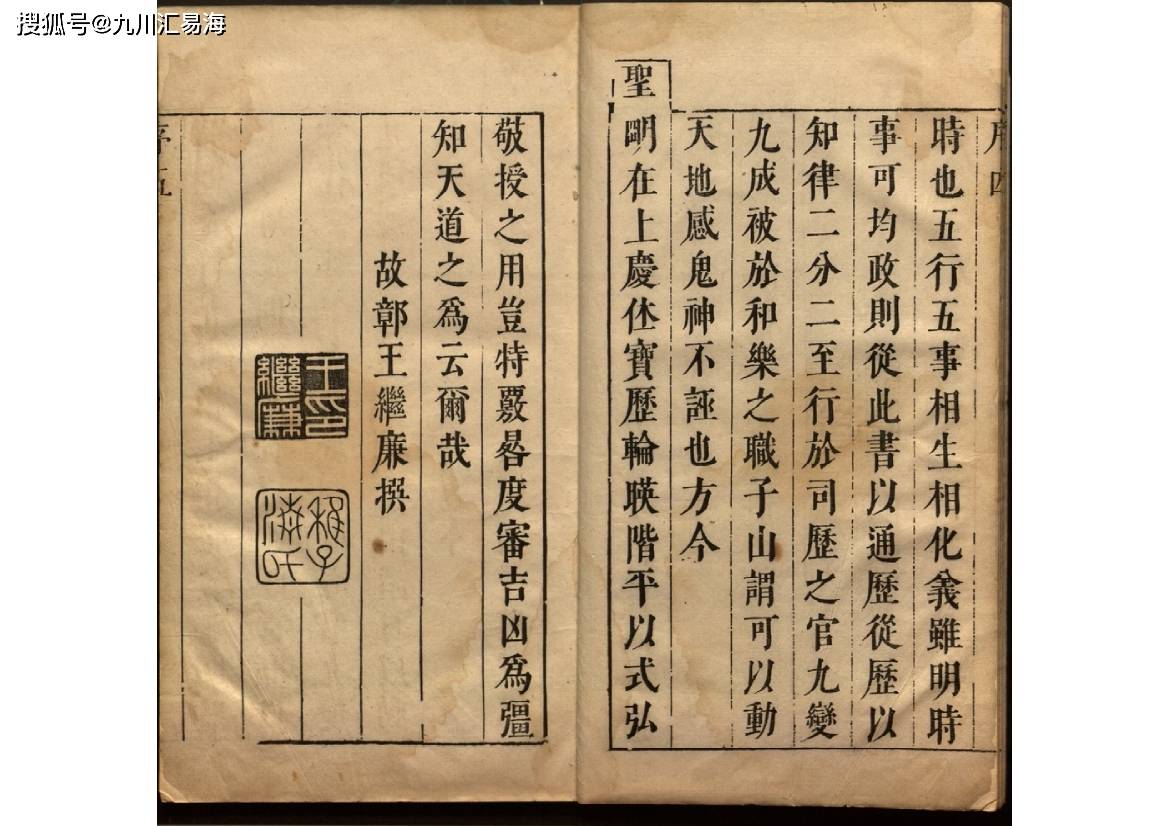 搜狐号@九川汇易海
序四
時也五行五事相生相化義雖明時
事可均政則從此書以通歷從歷以
知律二分二至行於司歷之官九變
九成被於和樂之職子山謂可以動
天地感鬼神不誣也方今
聖
明在上慶休寶歷輪暎階平以式弘
敬授之用豈特覈晷度審吉凶爲彊
知天道之爲云爾哉
故鄣王繼廉撰
王印
繼廉
稺子
海氏
序五